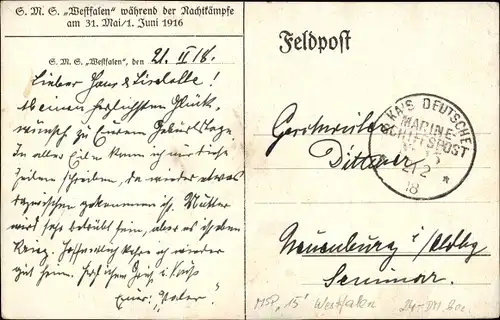 S. M. S. „Westfalen" während der Nachtkämpfe
am 31. Mai/1. Juni 1916
S. M. S. „Westfalen", den 21. II 18.
Lieber Hans & Liselotte!
Meinen herzlichsten Glück-
wunsch zu Eurem Geburtstage
In aller Eile kann ich nur diese
Zeilen schreiben, da wieder etwas
dazwischen gekommen ist. Mutter
wird sehr betrübt sein, aber es ist eben
Krieg. Hoffentlich kehre ich wieder
gut heim. Herzlichen Gruß & Kuß
Euer „Vater".
Feldpost
KAIS. DEUTSCHE
MARINE-
SCHIFFSPOST
15
21 2
18
Geschwister
Dittmer
Neuenburg i/Oldbg
Seminar.
MSP „15" Westfalen